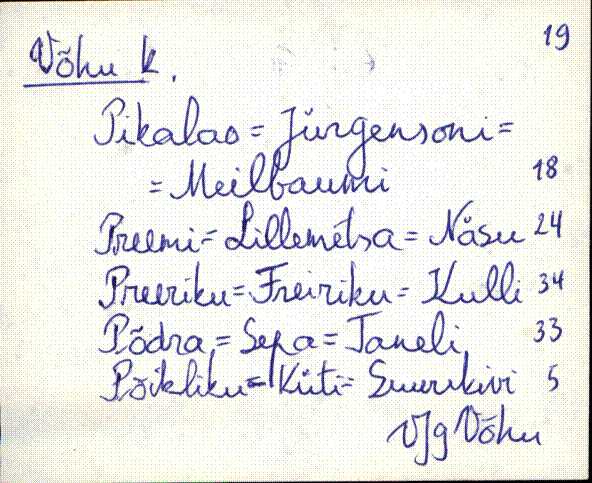 19
Võhu k.
Pikalao = Jürgensoni =
= Meilbaumi 18
Preemi = Lillemétsa = Näsu 24
Preeriku = Freiriku = Kulli 34
Põdra = Sepa = Taneli 33
Põikliku = Küti = Suurekivi 5
VJg Võhu